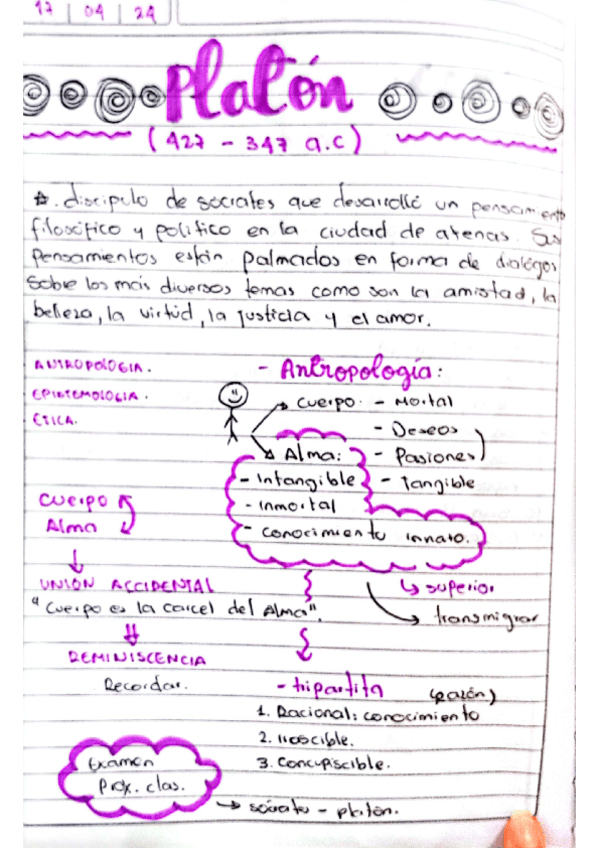 17 | 04 | 24
Platón
(427 - 347 a.c)
☆. discipulo de socrates que desarrolló un pensamiento
filosofico y politico en la ciudad de atenas. Sus
pensamientos están palmados en forma de dialógos
Sobre los más diversos temas como son la amistad, la
belleza, la virtud, la justicia y el amor.
ANTROPOLOGIA.
EPISTEMOLOGIA.
ETICA.
- Antropología:
cuerpo. - Mortal
- Deseos
- Pasiones
- Tangible
Alma:
- Intangible
- inmortal
- conocimiento innato.
↳ superior
transmigrar
cuerpo
Alma
↓
UNION ACCIDENTAL
"Cuerpo es la carcel del Alma".
⇓
REMINISCENCIA
Recordar.
- tripartita (razón)
1. Racional: conocimiento
2. Irascible.
3. Concupiscible.
Examen
Prox. clas.
→ sócrates - platón.